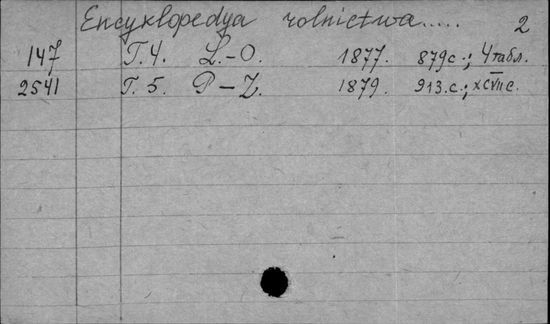 Encyklopedya rolnictwa..... 2
147 Т.4. L.-O. 1877. 879с.; 4 табл.
2541 Т.5. P-Z. 1879. 913.с.; XCVII с.